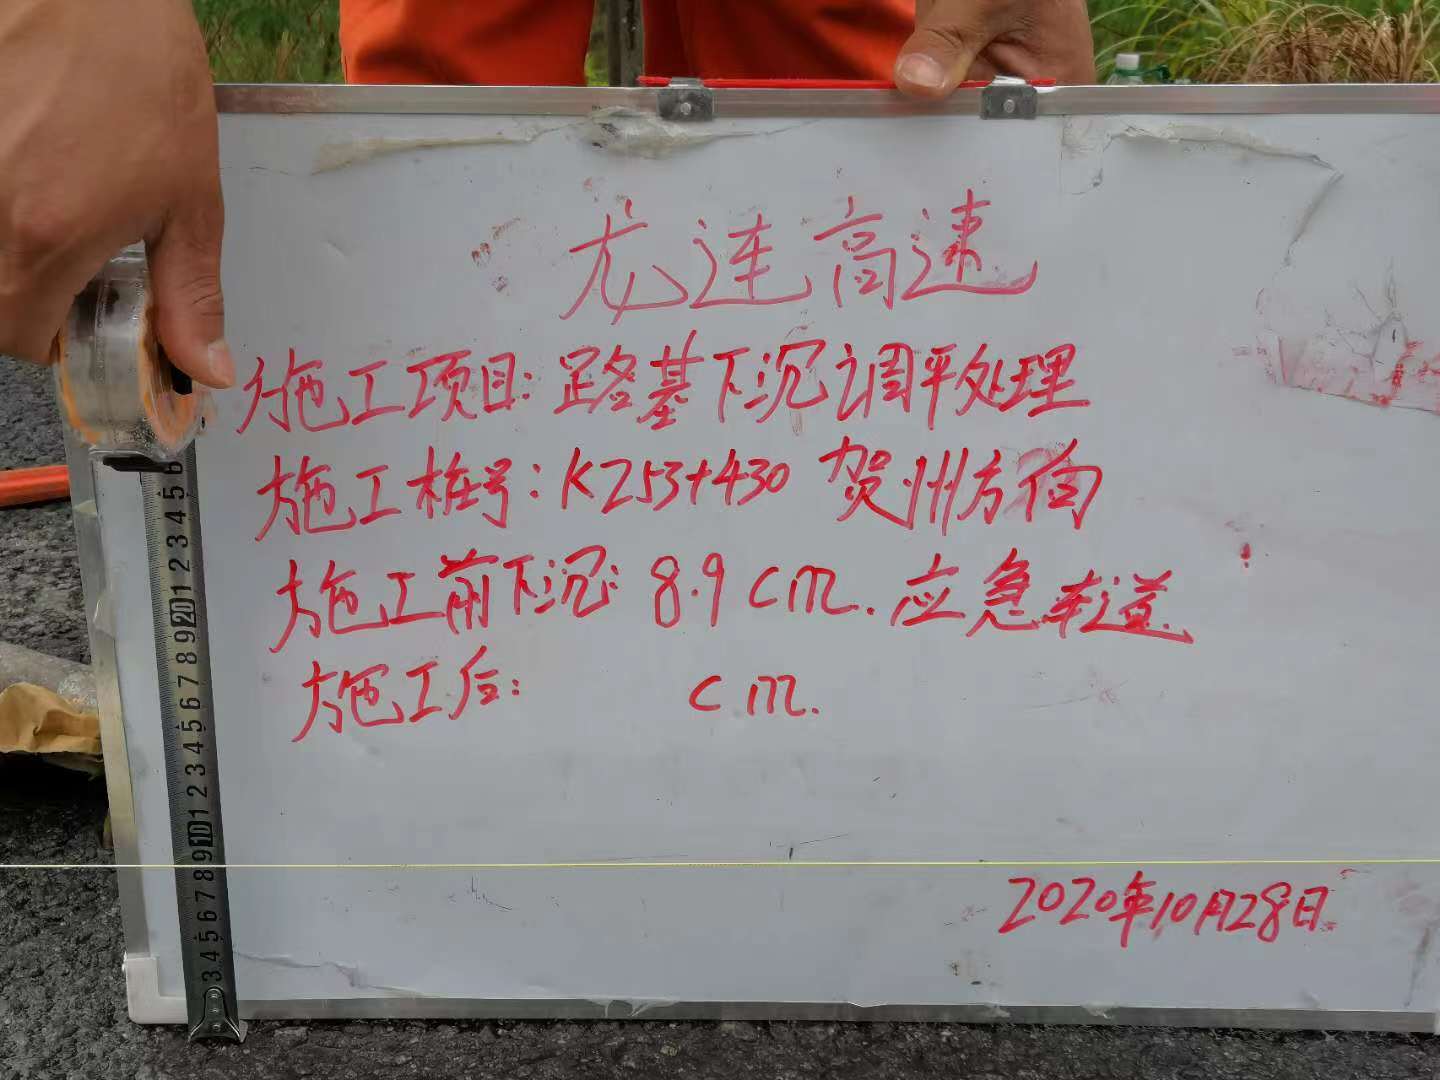 龙连高速
施工项目:路基下沉调平处理
施工桩号:K253+430 贺州方向
施工前下沉:8.9cm.应急车道.
施工后: cm.
2020年10月28日
6
5
4
3
2
1
20
9
8
7
6
5
4
3
2
1
10
9
8
7
6
5
4
3